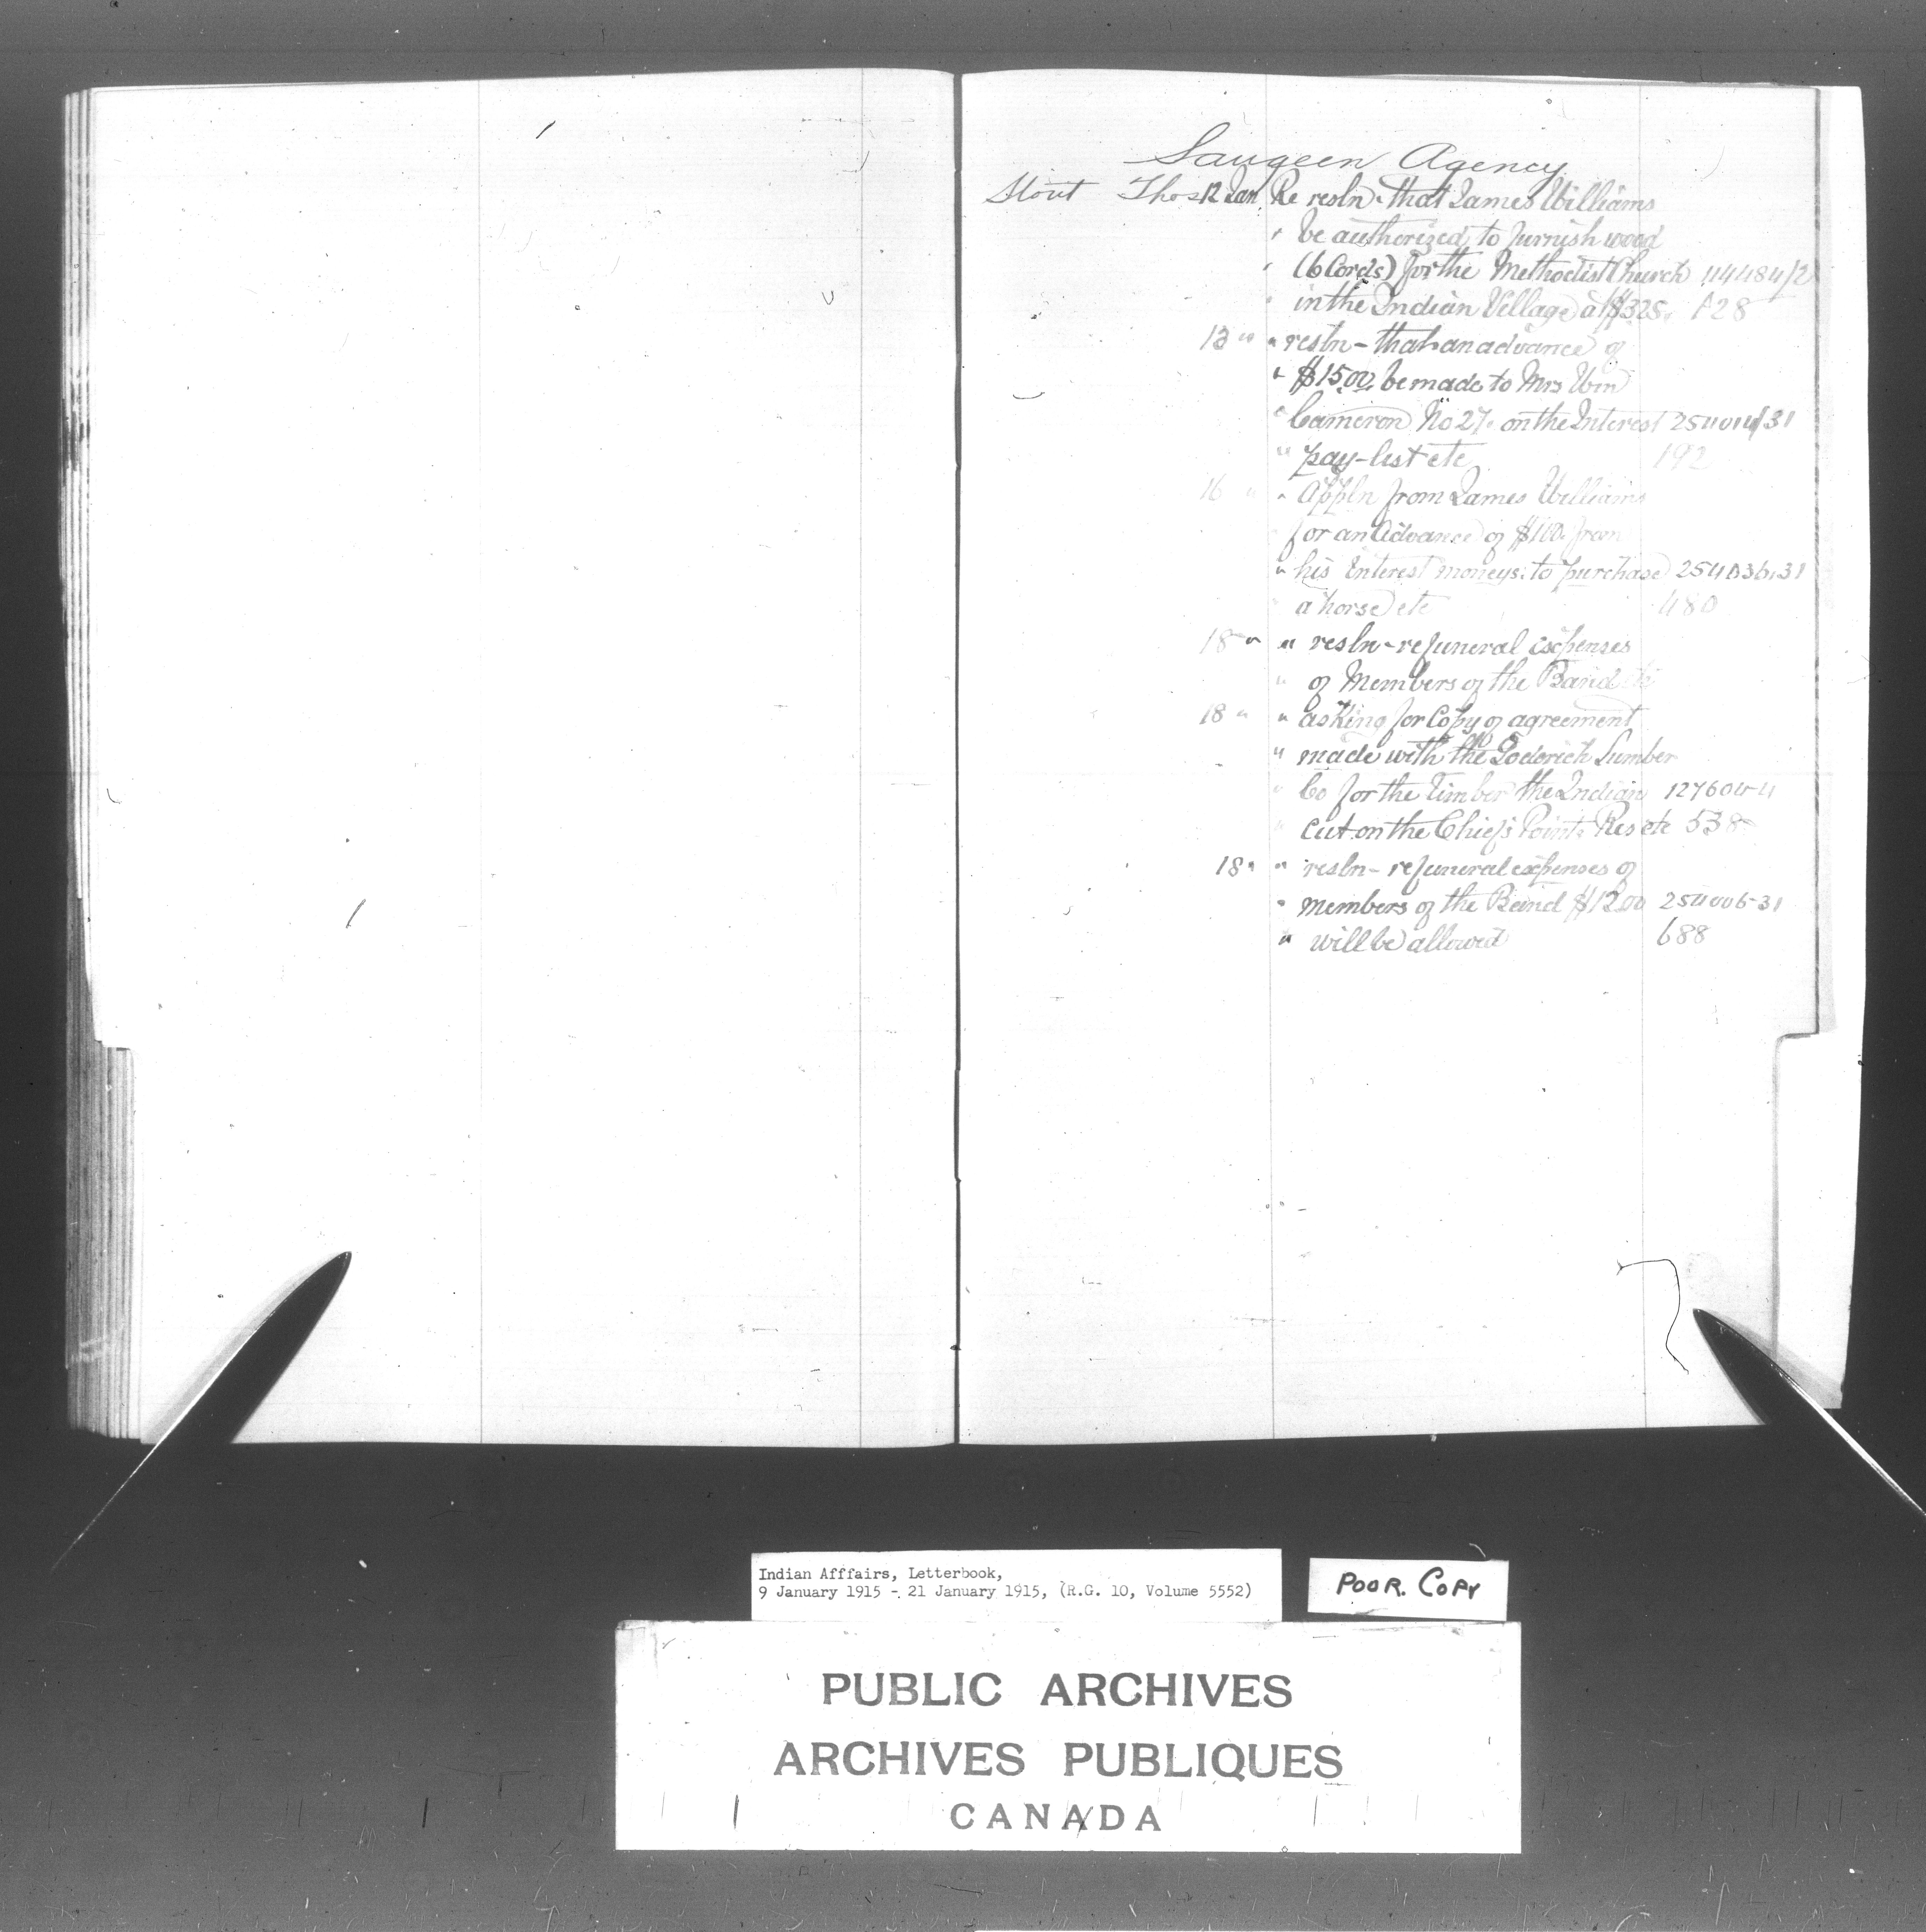 Saugeen Agency
Stout Thos 12 Jan. Re resln - that James Williams
" be authorized to furnish wood
" (6 Cords) for the Methodist Church 114484/2
" in the Indian Village at $3.25. 128
13 " " resln - that an advance of
" $15.00 be made to Mrs Wm
" Cameron No 27. on the Interest 254014/31
" pay-list etc 192
16 " " Appln from James Williams
for an Advance of $100. from
" his Interest moneys. to purchase 254036.31
" a horse etc 480
18 " " resln - re funeral expenses
" of Members of the Band etc
18 " " asking for Copy of agreement
" made with the Goderich Lumber
" Co for the Timber the Indian 127604-4
" cut on the Chief's Point Res etc 538
18 " " resln - re funeral expenses of
" members of the Band $12.00 254006-31
" will be allowed 688
Indian Afffairs, Letterbook,
9 January 1915 - 21 January 1915, (R.G. 10, Volume 5552)
POOR. COPY
PUBLIC ARCHIVES
ARCHIVES PUBLIQUES
CANADA